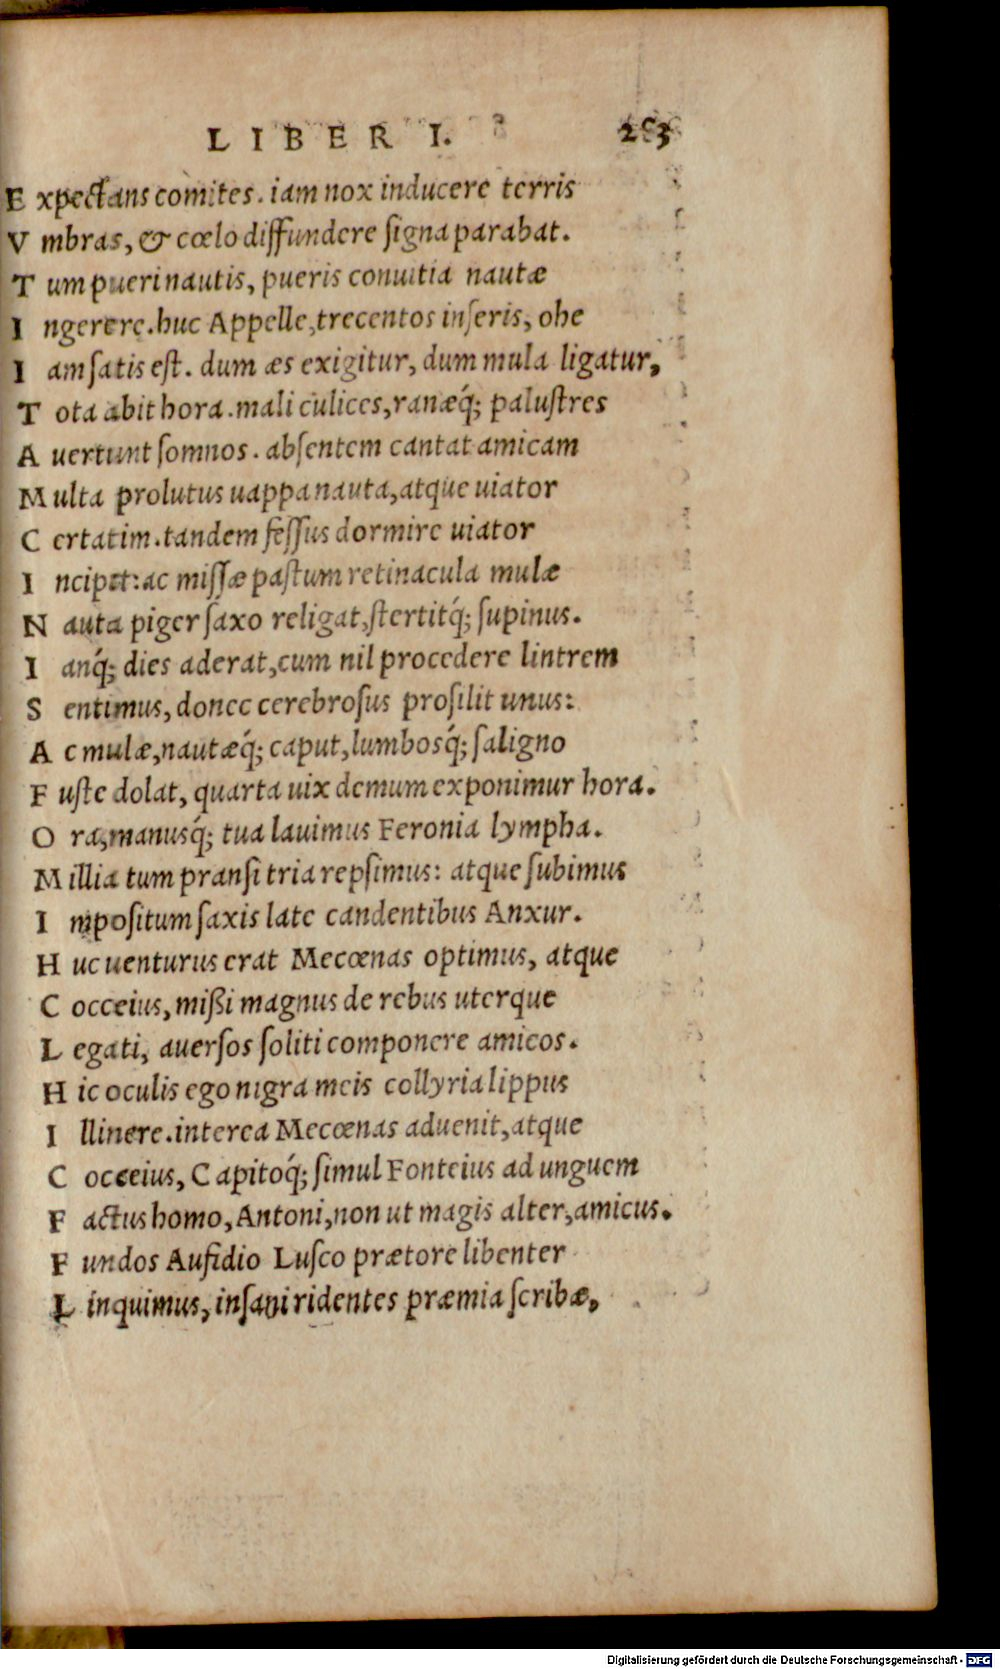 LIBER I. 203
Expectans comites. iam nox inducere terris
Vmbras, & cœlo diffundere signa parabat.
Tum pueri nautis, pueris conuitia nautæ
Ingerere. huc Appelle, trecentos inseris, ohe
Iam satis est. dum æs exigitur, dum mula ligatur,
Tota abit hora. mali culices, ranæq́; palustres
Auertunt somnos. absentem cantat amicam
Multa prolutus uappa nauta, atque uiator
Certatim. tandem fessus dormire uiator
Incipit: ac missæ pastum retinacula mulæ
Nauta piger saxo religat, stertitq́; supinus.
Ianq́; dies aderat, cum nil procedere lintrem
Sentimus, donec cerebrosus prosilit unus:
Ac mulæ, nautæq́; caput, lumbosq́; saligno
Fuste dolat, quarta uix demum exponimur hora.
Ora, manusq́; tua lauimus Feronia lympha.
Millia tum pransi tria repsimus: atque subimus
Impositum saxis late candentibus Anxur.
Huc uenturus erat Mecœnas optimus, atque
Cocceius, mißi magnus de rebus uterque
Legati, auersos soliti componere amicos.
Hic oculis ego nigra meis collyria lippus
Illinere. interea Mecœnas aduenit, atque
Cocceius, Capitoq́; simul Fonteius ad unguem
Factus homo, Antoni, non ut magis alter, amicus.
Fundos Aufidio Lusco prætore libenter
Linquimus, insani ridentes præmia scribæ,
Digitalisierung gefördert durch die Deutsche Forschungsgemeinschaft - DFG